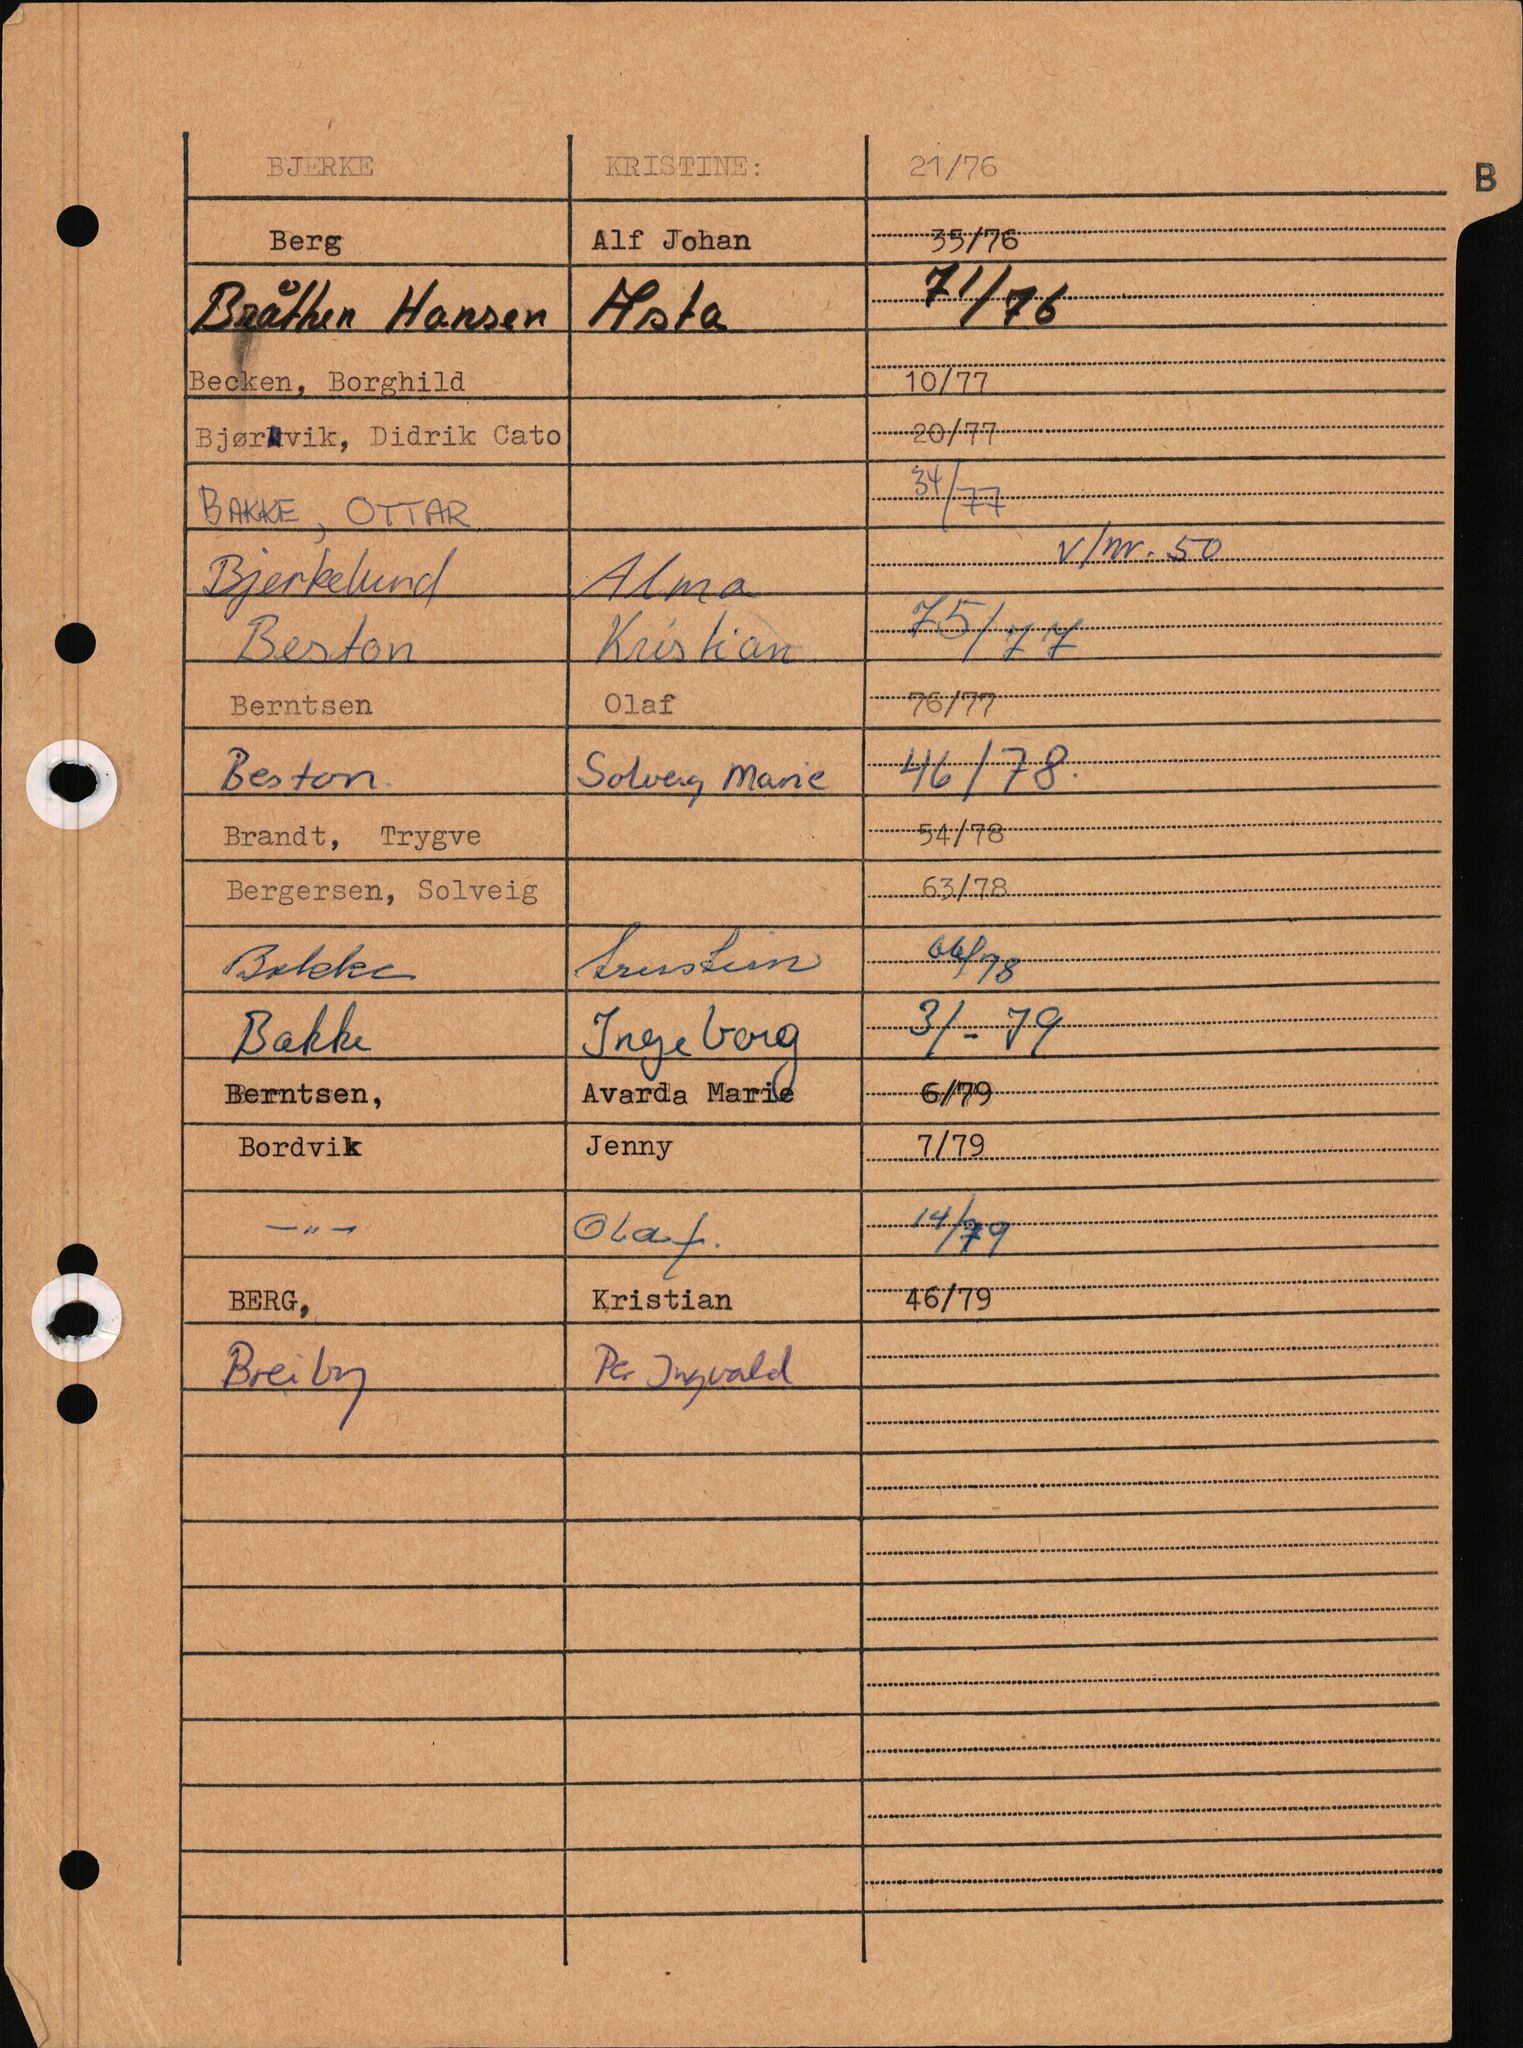 BJERKE KRISTINE: 21/76
B
Berg Alf Johan 35/76
Bråthen Hansen Asta 71/76
Becken, Borghild 10/77
Bjørkvik, Didrik Cato 20/77
BAKKE, OTTAR 34/77
Bjerkelund Alma v/nr. 50
Beston Kristian 75/77
Berntsen Olaf 76/77
Beston Solveig Marie 46/78.
Brandt, Trygve 54/78
Bergersen, Solveig 63/78
Bakke 66/78
Bakke Ingeborg 3/-79
Berntsen, Avarda Marie 6/79
Bordvik Jenny 7/79
—"— Olaf. 14/79
BERG, Kristian 46/79
Breiby Per Ingvald